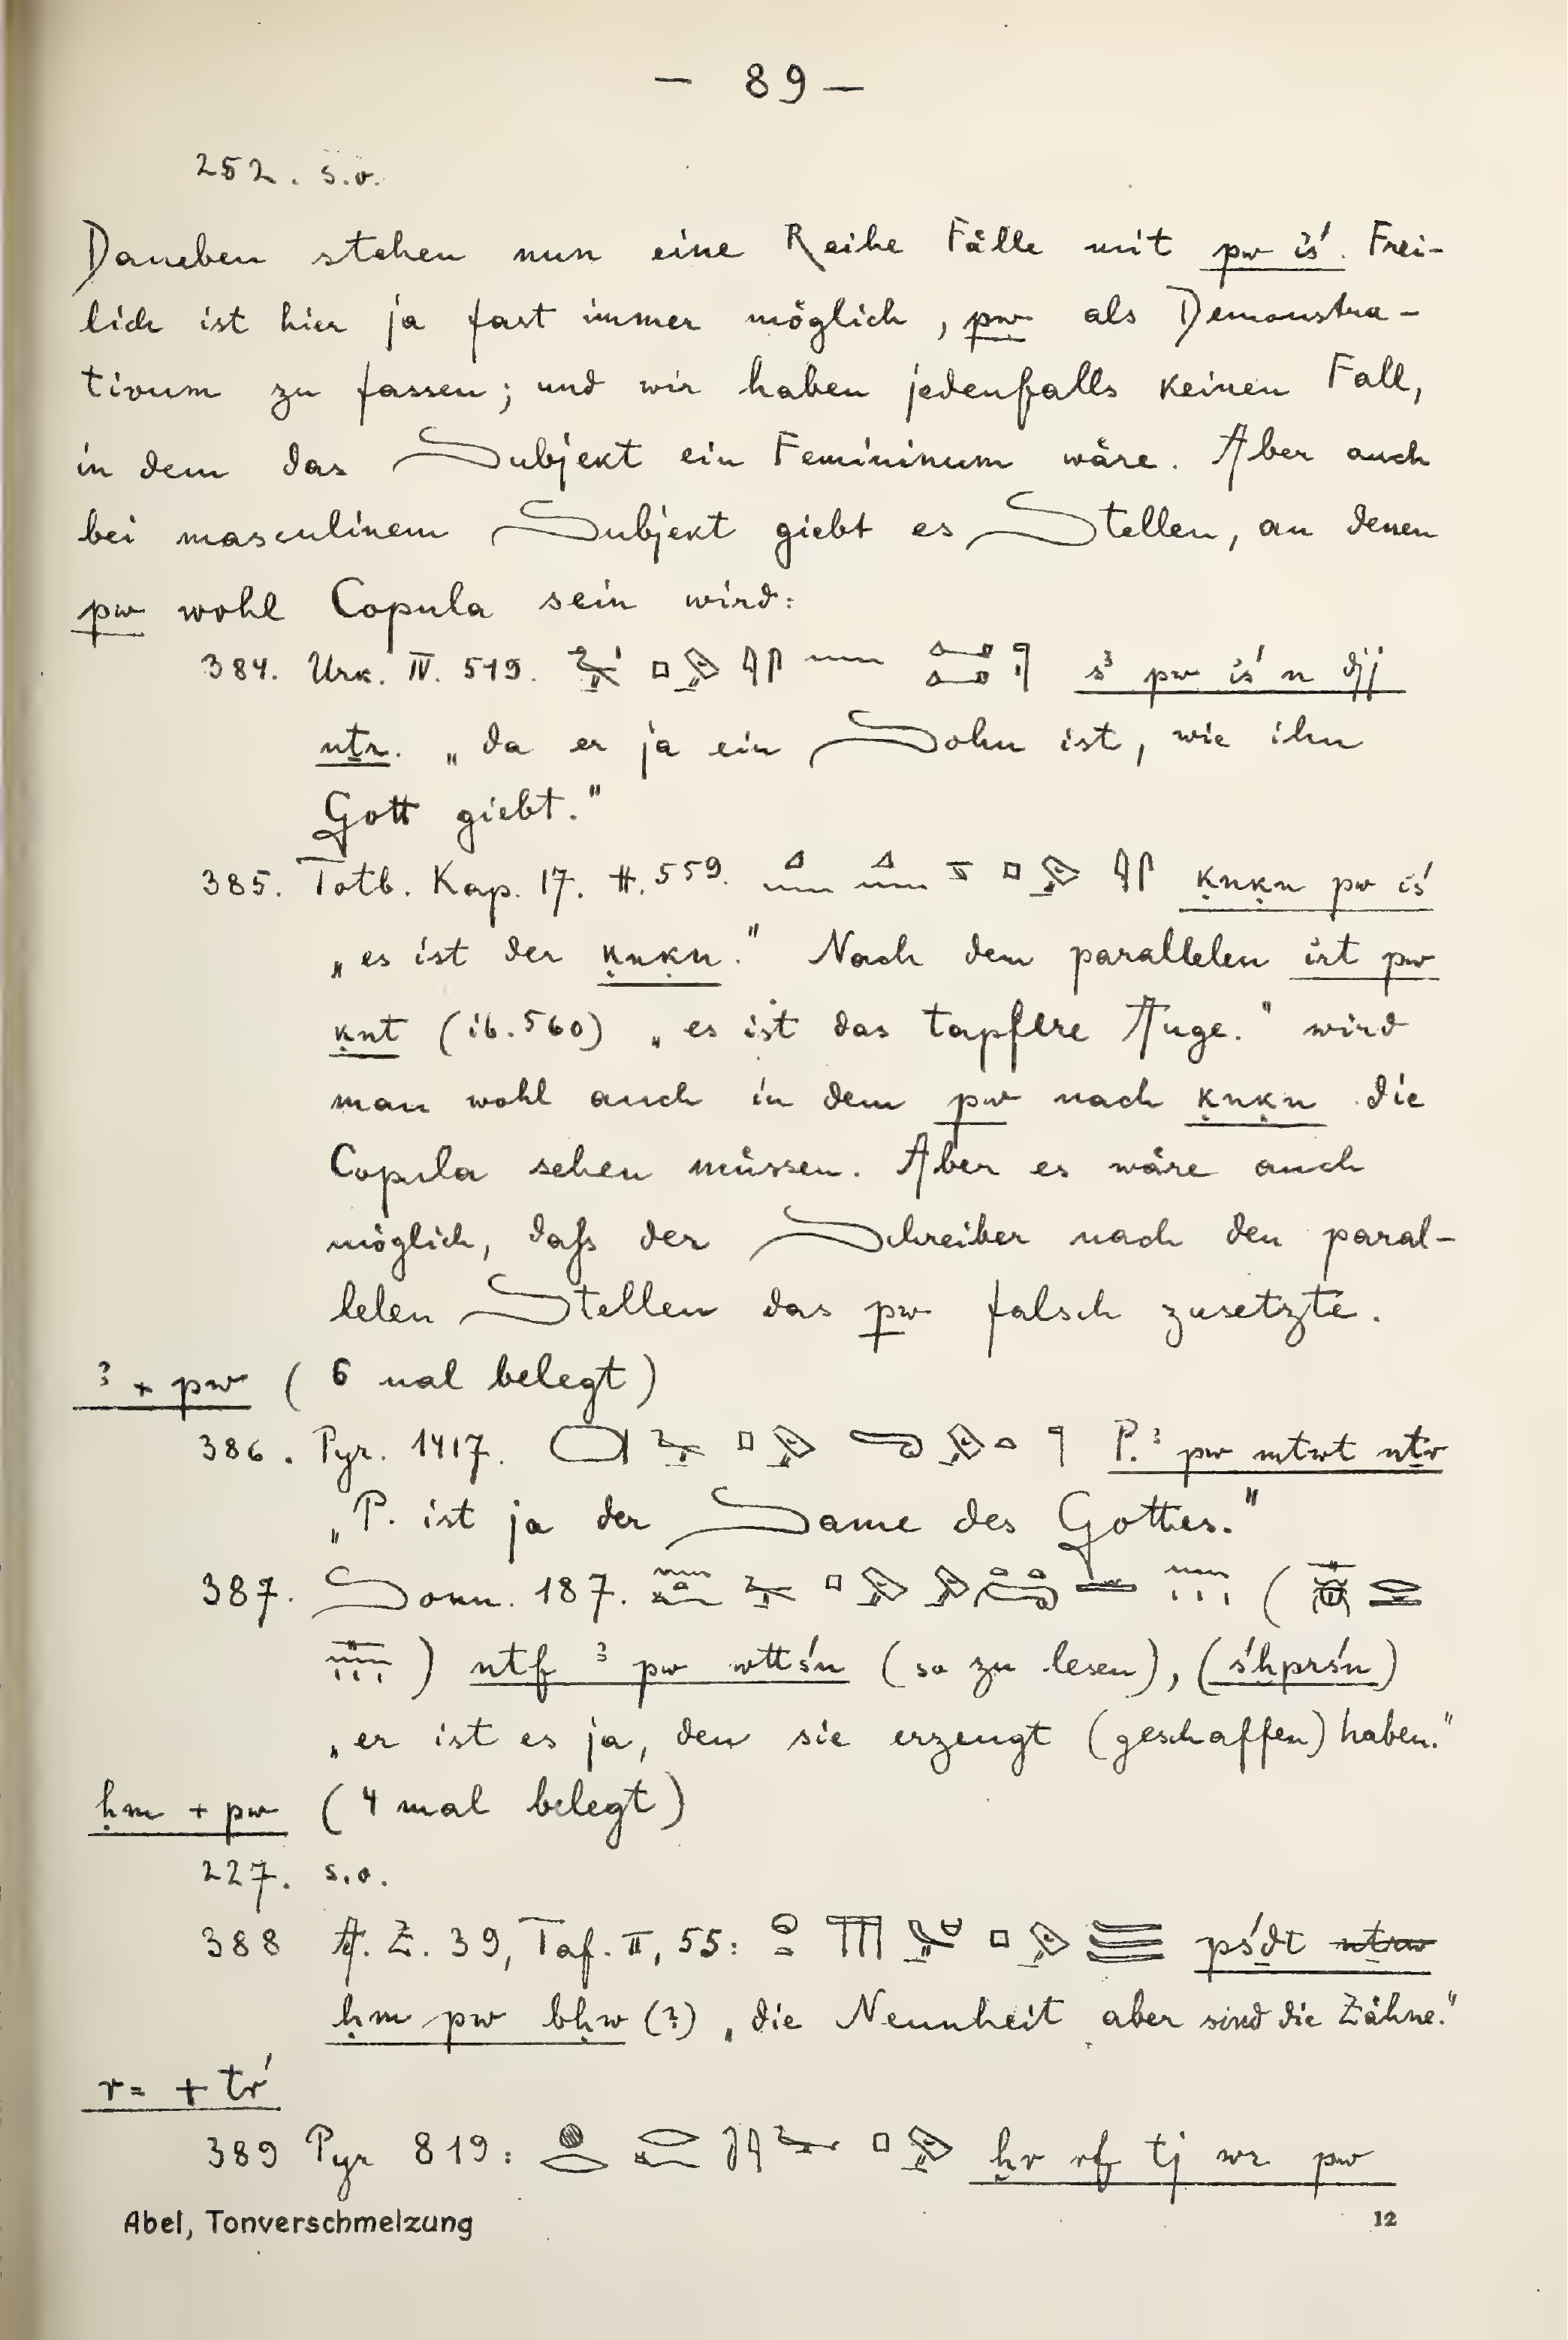 — 89 —
252. s.o.
Daneben stehen nun eine Reihe Fälle mit pw iś. Frei-
lich ist hier ja fast immer möglich, pw als Demonstra-
tivum zu fassen; und wir haben jedenfalls keinen Fall,
in dem das Subjekt ein Femininum wäre. Aber auch
bei masculinem Subjekt giebt es Stellen, an denen
pw wohl Copula sein wird:
384. Urk. IV. 519. sꜣ pw iś n djj
nṯr. „da er ja ein Sohn ist, wie ihn
Gott giebt."
385. Totb. Kap. 17. #. 559. ḳnḳn pw iś
„es ist der ḳnḳn." Nach dem parallelen irt pw
ḳnt (ib. 560) „es ist das tapfere Auge." wird
man wohl auch in dem pw nach ḳnḳn die
Copula sehen müssen. Aber es wäre auch
möglich, daſs der Schreiber nach den paral-
lelen Stellen das pw falsch zusetzte.
ꜣ + pw (6 mal belegt)
386. Pyr. 1417. P. ꜣ pw mtwt nṯr
„P. ist ja der Same des Gottes."
387. Sonn. 187. (
) ntf ꜣ pw wttśn (so zu lesen), (śḫprśn)
„er ist es ja, den sie erzeugt (geschaffen) haben."
ḥm + pw (4 mal belegt)
227. s.o.
388 Ä. Z. 39, Taf. II, 55: pśḏt nṯrw
ḥm pw bḥw (?) „die Neunheit aber sind die Zähne."
r= + tr
389 Pyr 819: ḫr rf tj wr pw
Abel, Tonverschmelzung 12